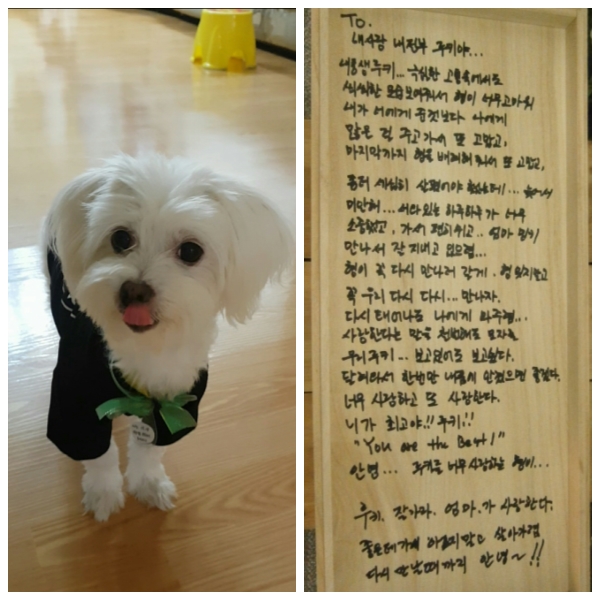 To.
내사랑 내전부 쿠키야...
내동생 쿠키... 극심한 고통속에서도
씩씩한 모습보여줘서 형이 너무고마워
내가 너에게 준것보다 나에게
많은 걸 주고가서 또 고맙고,
마지막까지 형을 배려해줘서 또 고맙고,
좀더 세심히 살폈어야 했는데!...
미안해... 너와있는 하루하루가 너무
소중했고, 가서 편히쉬고.. 엄마
만나서 잘지내고 있으렴...
형이 꼭 다시 만나러 갈게. 형 잊지말고
꼭 우리 다시 다시... 만나자.
다시 태어나도 나에게 와주렴...
사랑한다는 말을 천번해도 모자란
우리쿠키... 보고있어도 보고싶다.
달려와서 한번만 내품에 안겼으면 좋겠다.
너무 사랑하고 또 사랑한다.
니가 최고야!! 쿠키!!
"You are the Best!"
안녕... 쿠키를 너무사랑하는 형이...
쿠키. 잘가라. 엄마.가 사랑한다.
좋은데가게 아프지말고 살아가렴
다시 만날때까지 안녕~!!